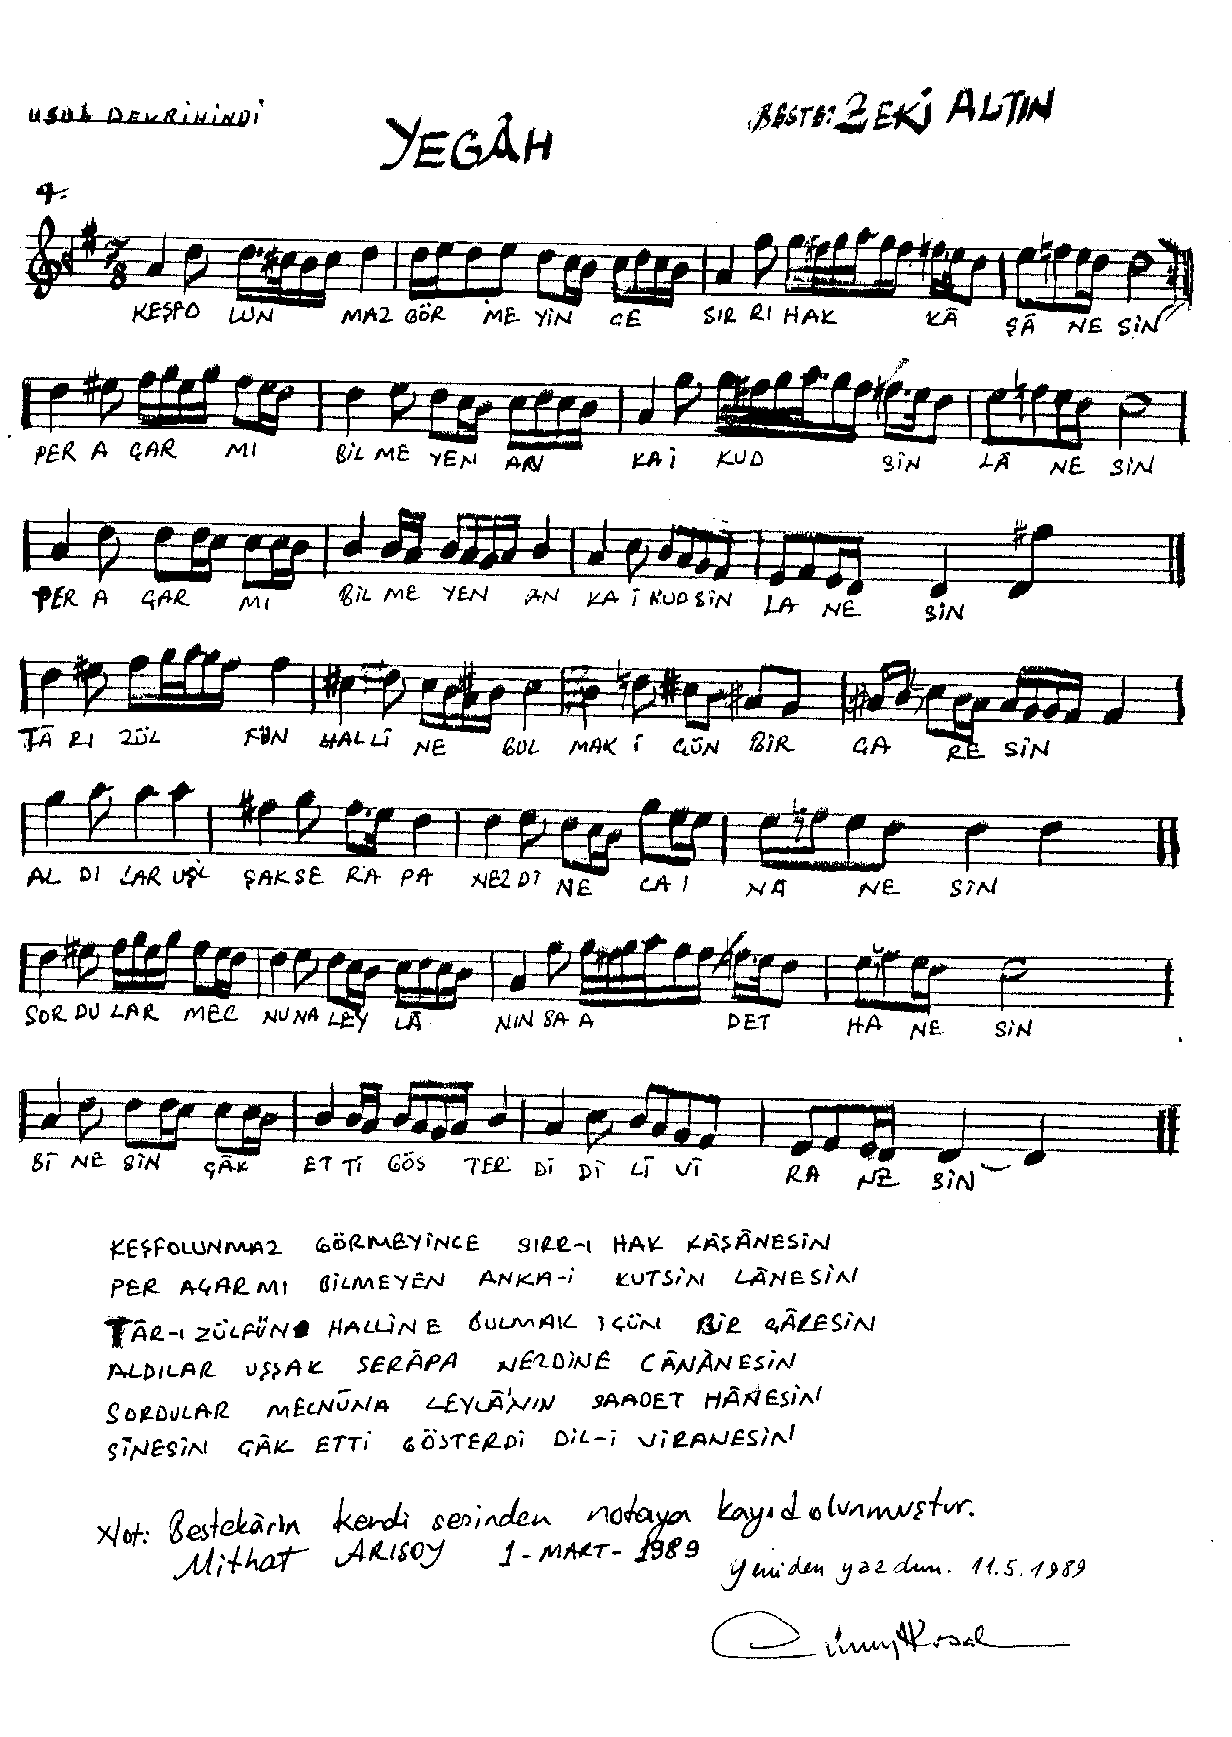 USUL DEVRİHİNDİ
BESTE: ZEKİ ALTIN
YEGÂH
4.
7
8
KEŞFO LUN MAZ GÖR ME YİN CE SIR RI HAK KÂ ŞÂ NE SİN
PER A ÇAR MI BİL ME YEN AN KA İ KUD SİN LÂ NE SİN
PER A ÇAR MI BİL ME YEN AN KA İ KUD SİN LA NE SİN
TÂ RI ZÜL FÜN HAL Lİ NE BUL MAK İ ÇÜN BİR ÇA RE SİN
AL DI LAR UŞ ŞAK SE RA PA NEZ Dİ NE CA İ NÂ NE SİN
SOR DU LAR MEC NU NA LEY LÂ NIN SA A DET HA NE SİN
Sİ NE SİN ÇÂK ET Tİ GÖS TER Dİ Dİ Lİ Vİ RA NE SİN
KEŞFOLUNMAZ GÖRMEYİNCE SIRR-I HAK KÂŞÂNESİN
PER AÇAR MI BİLMEYEN ANKA-İ KUTSİN LÂNESİN
TÂR-I ZÜLFÜN HALLİNE BULMAK IÇÜN BİR ÇÂRESİN
ALDILAR UŞŞAK SERÂPA NEZDİNE CÂNÂNESİN
SORDULAR MECNÛNA LEYLÂ'NIN SAADET HÂNESİN
SÎNESİN ÇÂK ETTİ GÖSTERDİ DİL-İ VİRANESİN
Not: Bestekârın kendi sesinden notaya kayıd olunmuştur.
Mithat ARISOY 1-MART-1989
Yeniden yazdım. 11.5.1989